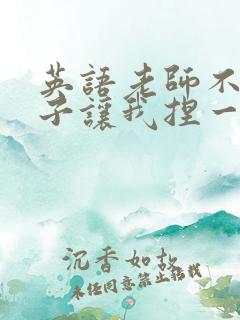 英語老師不
子讓我捏一
沉香如故
未经同意禁止搭载